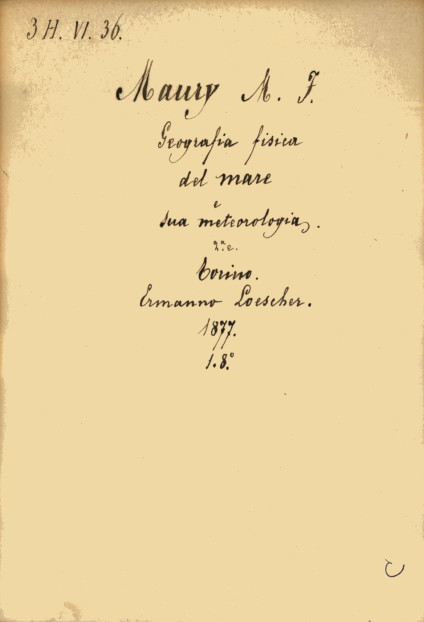 3 H. VI. 36.
Maury M. F.
Geografia fisica
del mare
e
sua meteorologia.
2ª e.
Torino.
Ermanno Loescher.
1877.
1. 8.°